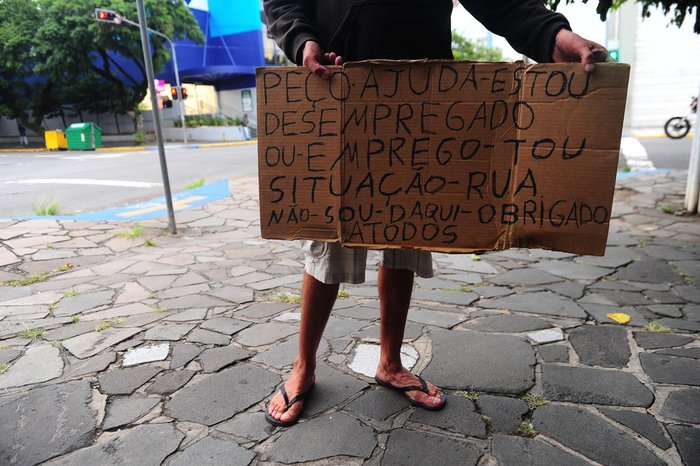 PEÇO-AJUDA-ESTOU
DESEMPREGADO
OU-EMPREGO-TOU
SITUAÇÃO-RUA
NÃO-SOU-DAQUI-OBRIGADO
ATODOS